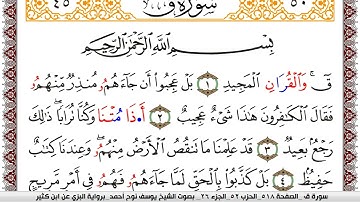 ٤٥ سورة ق ٥٠
بِسْمِ اللَّهِ الرَّحْمَٰنِ الرَّحِيمِ
قٓ ۚ وَالْقُرَانِ الْمَجِيدِ ۝١ بَلْ عَجِبُوا أَن جَاءَهُمُۥ مُنذِرٌ مِّنْهُمُۥ
فَقَالَ الْكَٰفِرُونَ هَٰذَا شَيْءٌ عَجِيبٌ ۝٢ أَٰ۟ذَا مُتْنَا وَكُنَّا تُرَابًا ۖ ذَٰلِكَ
رَجْعٌ بَعِيدٌ ۝٣ قَدْ عَلِمْنَا مَا تَنقُصُ الْأَرْضُ مِنْهُمُۥ ۖ وَعِندَنَا كِتَٰبٌ
حَفِيظٌ ۝٤ بَلْ كَذَّبُوا بِالْحَقِّ لَمَّا جَاءَهُمُۥ فَهُمُۥ فِي أَمْرٍ مَّرِيجٍ
سورة ق الصفحة ٥١٨ الحزب ٥٢ الجزء ٢٦ بصوت الشيخ يوسف نوح أحمد برواية البزي عن ابن كثير